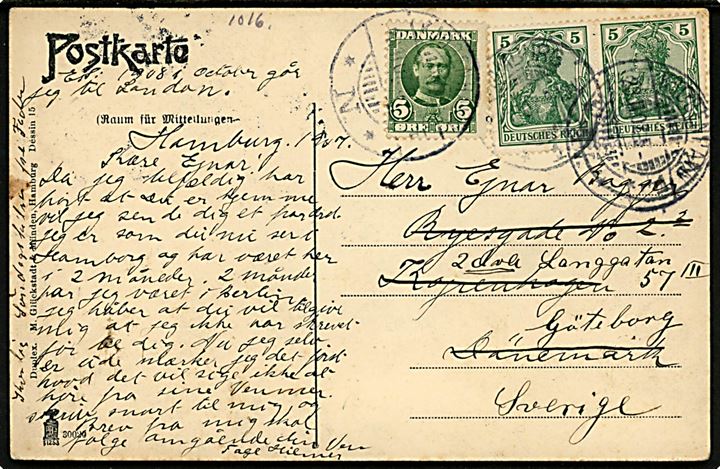 1016.
Postkarte
En 1908 i October går
jeg til London.
(Raum für Mitteilungen)
Hamburg. 1907.
Kære Ejnar!
Da jeg tilfældig har
hørt at du er hjemme
vil jeg sende dig et par ord
jeg er som du nu ser i
Hamborg og har været her
i 2 måneder. 2 månder
har jeg været i Berlin
jeg håber at du vil tilgive
mig at jeg ikke har skrevet
før til dig. Nu jeg selv
er ude mærker jeg det først
hvad det vil sige ikke at
høre fra sine Venner.
skriv snart til mig og
brev fra mig skal
følge angående din Ven
Duplex. M. Glückstadt & Münden, Hamburg Dessin 15
DANMARK
5 5
ØRE ØRE
5 5
DEUTSCHES REICH
5 5
DEUTSCHES REICH
Herr Ejnar
Ryesgade No 2.
2dra Langgatan
Kopenhagen 57 III
Göteborg
Dänemark
Sverige